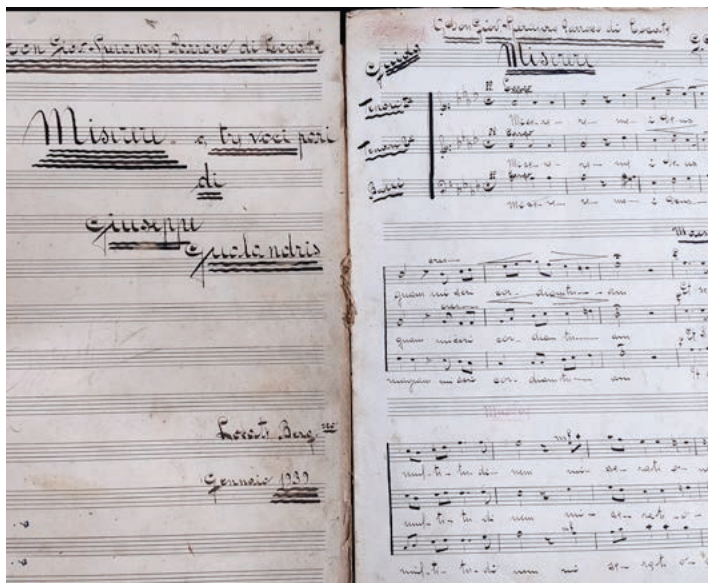 Don Giov. Speranza Parroco di Locate
Miserere a tre voci pari
di
Giuseppe
Gualandris
Locate Berg.sco
Gennaio 1939
Don Giov. Speranza Parroco di Locate
Guida
Miserere
Tenori 1i
Largo
Mise-re-re me-i De-us
Tenori 2i
Largo
Mise-re-re me-i De-us
Bassi
Largo
Mise-re-re me-i Deus
cres
quam mi seri cor-diam tu-am
Et se
cres
quam miseri cor-diam tu-am
magnam mi seri cor-diam tu-am
mf
mul-ti-tu-di-nem mi-se-rati-o-
mul-ti-tu-di nem mi-se-rati-o-
mf
mul-ti-tu-di-nem mi se-rati o-